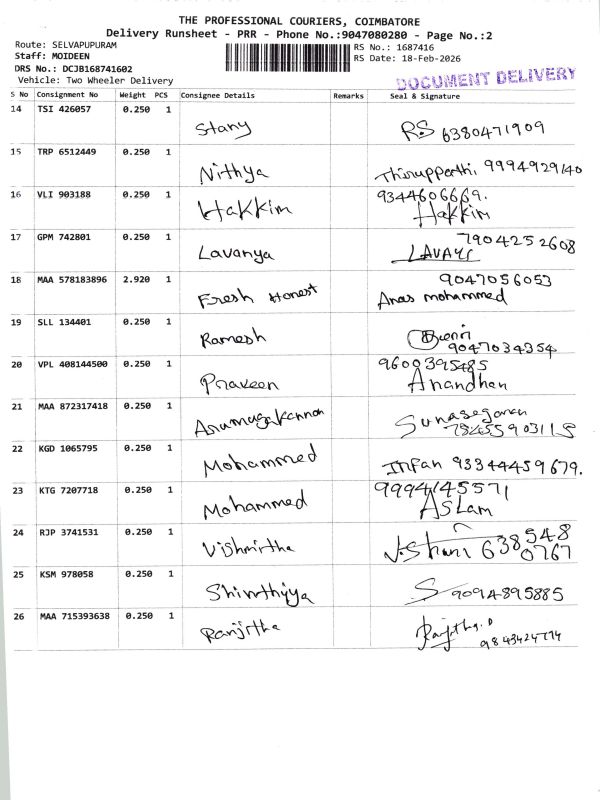 THE PROFESSIONAL COURIERS, COIMBATORE
Delivery Runsheet - PRR - Phone No.:9047080280 - Page No.:2
Route: SELVAPUPURAM
Staff: MOIDEEN
DRS No.: DCJB168741602
Vehicle: Two Wheeler Delivery
RS No.: 1687416
RS Date: 18-Feb-2026
DOCUMENT DELIVERY
S No Consignment No Weight PCS Consignee Details Remarks Seal & Signature
14 TSI 426057 0.250 1 Stany RS 6380471909
15 TRP 6512449 0.250 1 Nithya Thirupperthi 9994929140
16 VLI 903188 0.250 1 Hakkim 9344606669. Hakkim
17 GPM 742801 0.250 1 Lavanya 7904252608
18 MAA 578183896 2.920 1 Fresh Honest 9047056053 Anas mohammed
19 SLL 134401 0.250 1 Ramesh 9047034354
20 VPL 408144500 0.250 1 Praveen 9600395485 Anandhan
21 MAA 872317418 0.250 1 Arumugakannan Gunasegaran
22 KGD 1065795 0.250 1 Mohammed Irfan 93344459679.
23 KTG 7207718 0.250 1 Mohammed 9994145571 ASLam
24 RJP 3741531 0.250 1 Vishmirtha 638548 0767
25 KSM 978058 0.250 1 Shinthiya S 9094895885
26 MAA 715393638 0.250 1 Ranjitha Ranjitha.D